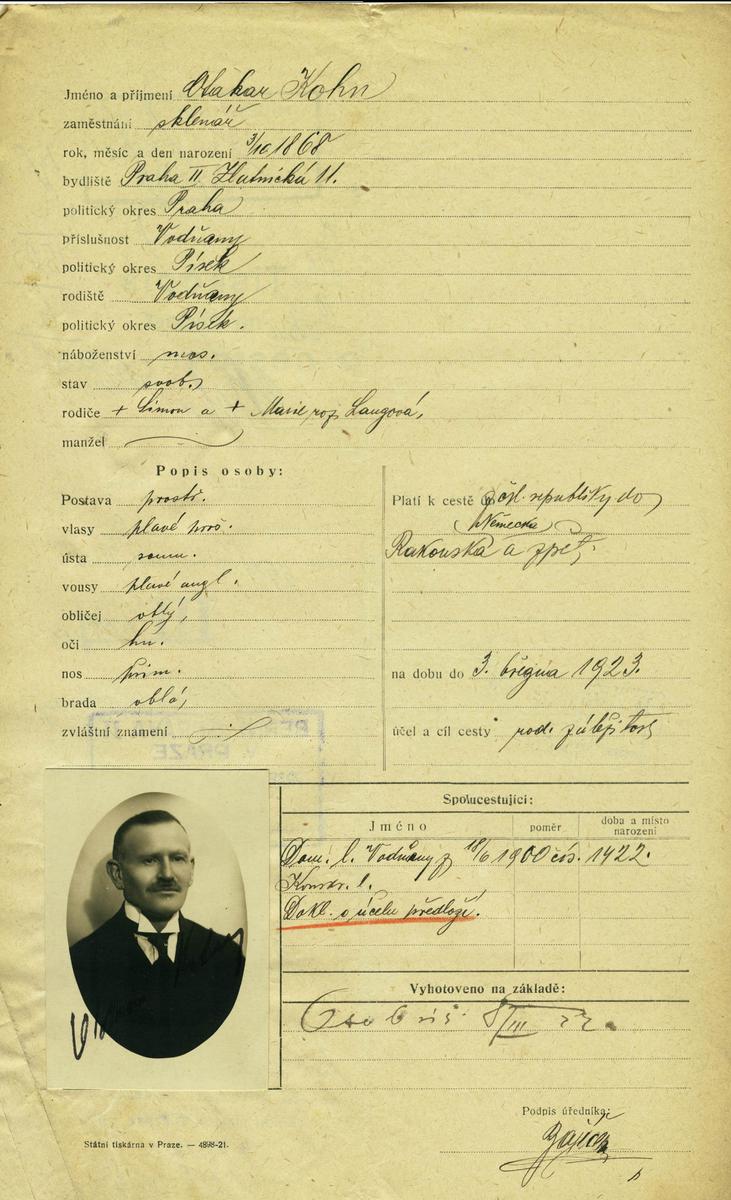 Jméno a příjmení Otakar Kohn
zaměstnání sklenář
rok, měsíc a den narození 3/10 1868
bydliště Praha II Zlatnická 11.
politický okres Praha
příslušnost Vodňany
politický okres Písek
rodiště Vodňany
politický okres Písek.
náboženství mos.
stav svob.
rodiče + Simon a + Marie roz. Langová,
manžel
Popis osoby:
Postava prostř.
vlasy plavé proš.
ústa soum.
vousy plavé angl.
obličej oblý,
oči hn.
nos přim.
brada oblá,
zvláštní znamení
Platí k cestě do čsl. republiky do
Německa
Rakouska a zpět.
na dobu do 3. března 1923.
účel a cíl cesty rod. záležitost
Spolucestující:
Jméno poměr doba a místo narození
Dom. l. Vodňany z 18/6 1900 čís. 1422.
Konskr. l.
Dokl. o účelu předloží.
Vyhotoveno na základě:
8/III 22.
Podpis úředníka:
Státní tiskárna v Praze. — 4898-21.